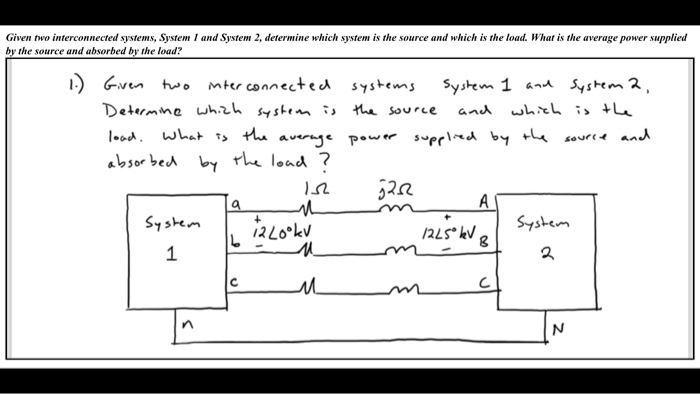 Given two interconnected systems, System 1 and System 2, determine which system is the source and which is the load. What is the average power supplied
by the source and absorbed by the load?
1.) Given two interconnected systems System 1 and System 2,
Determine which system is the source and which is the
load. What is the average power supplied by the source and
absorbed by the load?
1Ω j2Ω
a A
System 1
+ 12∠0° kV -
+ 12∠5° kV -
System 2
b B
c C
n N